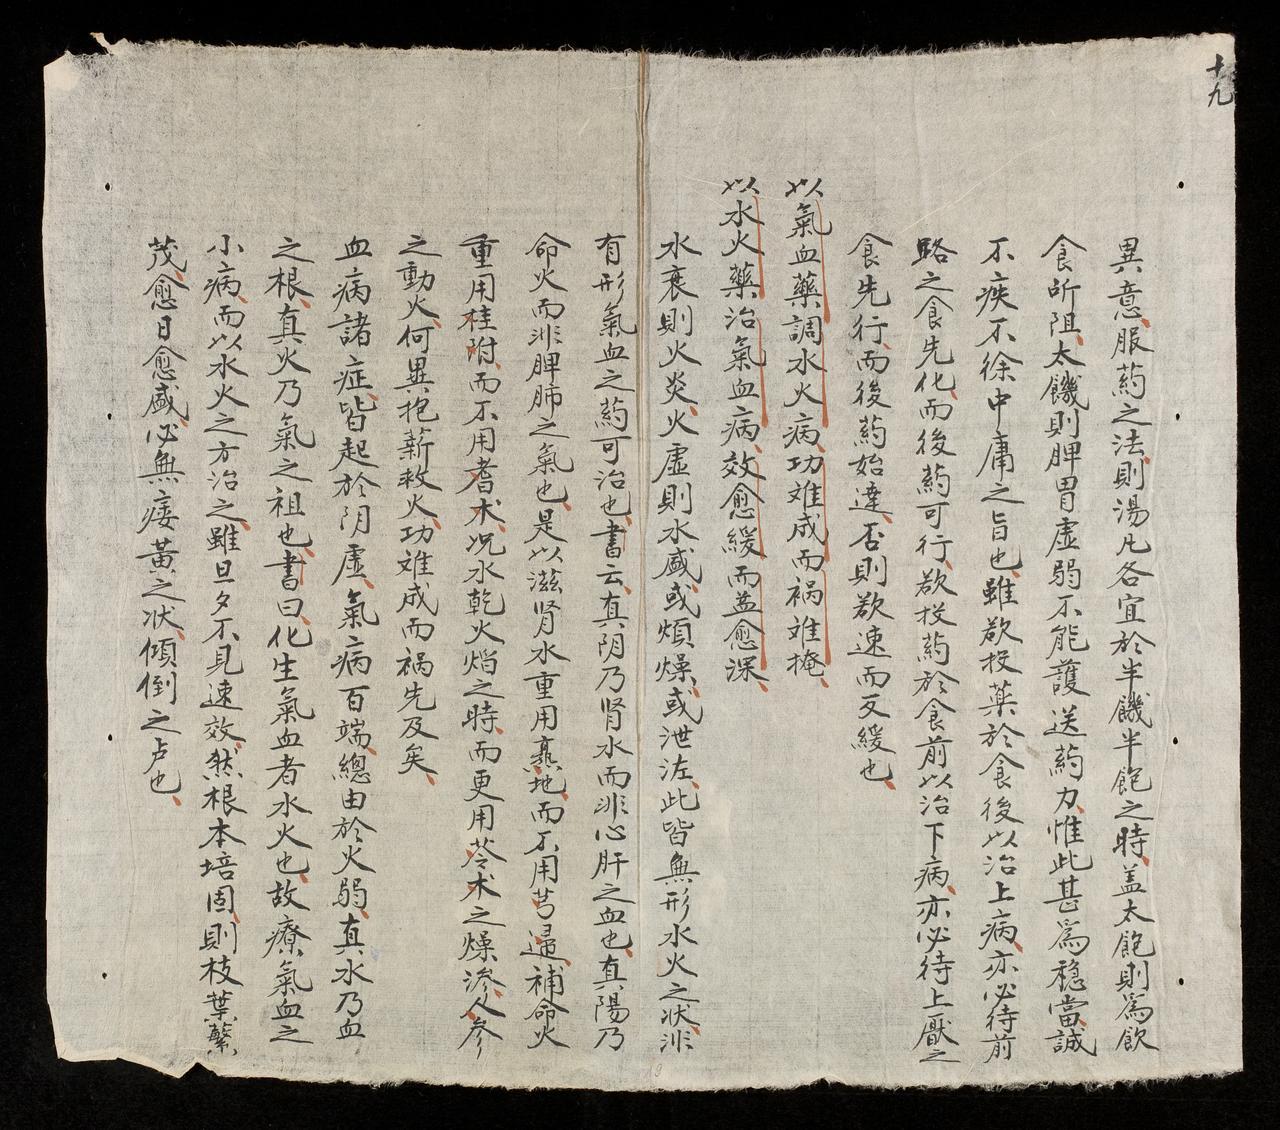 十九
異意、服药之法、則湯凡各宜於半饑半飽之時、盖太飽則爲飲
食所阻、太饑則脾胃虚弱不能護送药力、惟此甚爲稳當、誠
不疾不徐中庸之旨也、雖欲投薬於食後以治上病、亦必待前
路之食先化、而後药可行、欲投药於食前以治下病、亦必待上厭之
食先行、而後药始達、否則欲速而反緩也、
以氣血藥調水火病、功难成而禍难掩、
以水火藥治氣血病、效愈緩而益愈深、
水衰則火炎、火虛則水盛、或煩燥、或泄泣、此皆無形水火之状、非
有形氣血之药可治也、書云、真阴乃肾水而非心肝之血也、真陽乃
命火而非脾肺之氣也、是以滋肾水重用熟地、而不用芎歸、補命火
重用桂附、而不用耆术、况水乾火焰之時、而更用苓术之燥渗、人参
之動火、何異抱薪救火、功难成而禍先及矣、
血病諸症、皆起於阴虛、氣病百端、總由於火弱、真水乃血
之根、真火乃氣之祖也、書曰、化生氣血者水火也、故療氣血之
小病、而以水火之方治之、雖旦夕不見速效、然根本培固、則枝葉蘩
茂、愈日愈盛、必無痿黄之状、傾倒之卢也、
19